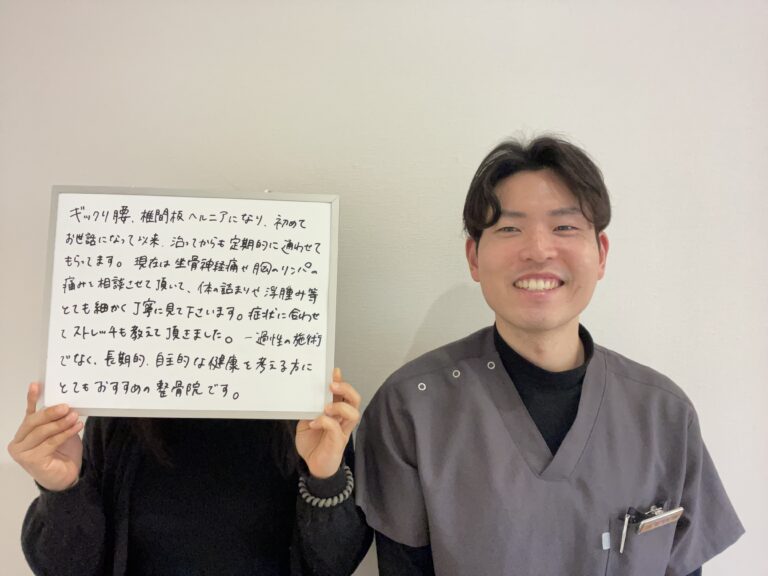 ギックリ腰、椎間板ヘルニアになり、初めて
お世話になって以来、治ってからも定期的に通わせて
もらってます。現在は坐骨神経痛や胸のリンパの
痛みで相談させて頂いて、体の詰まりや浮腫み等
とても細かく丁寧に見て下さいます。症状に合わせ
てストレッチも教えて頂きました。一過性の施術
でなく、長期的、自主的な健康を考える方に
とてもおすすめの整骨院です。